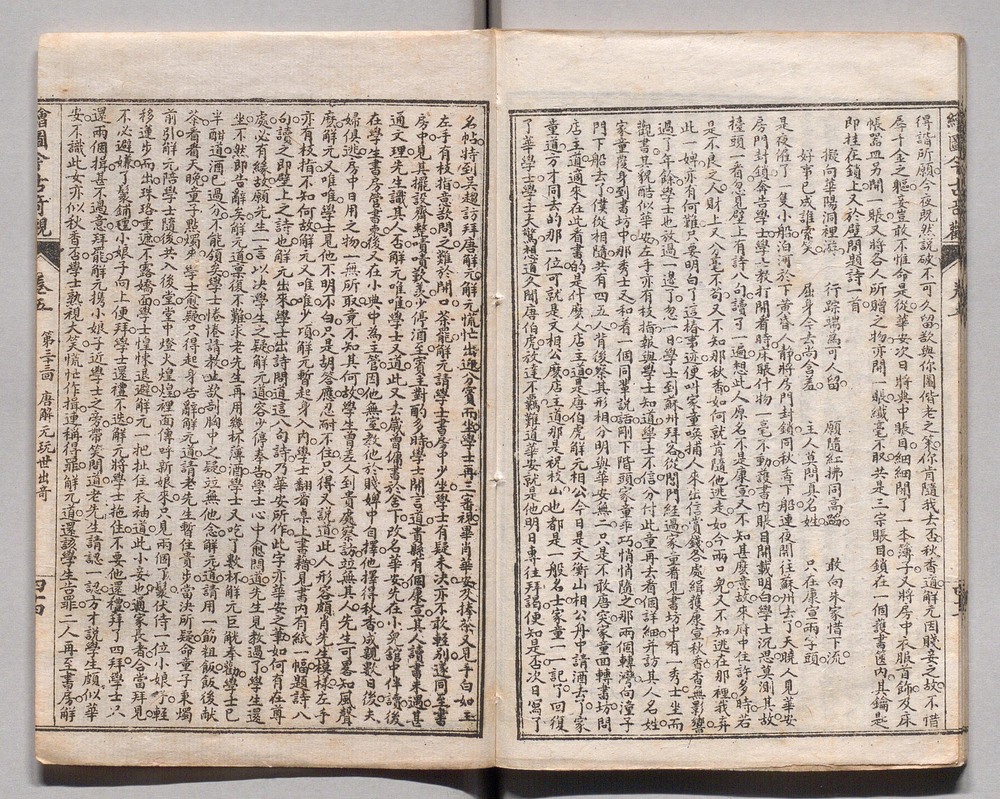 繪圖今古奇觀
得諧所願今夜既然説破不可久留欲與你圖偕老之策你肯隨我去否秋香道解元因賤妾之故不惜
辱千金之軀妾豈敢不惟命是從華安次日將典中賬目細細開了一本簿子又將房中衣服首飾及床
帳器皿另開一賬又將各人所贈之物亦開一賬纖毫不取共是三宗賬目鎖在一個護書匣內其鑰匙
即挂在鎖上又於壁間題詩一首
擬向華陽洞裡遊　行踪端為可人留　願隨紅拂同高蹈　敢向朱家惜下流
好事已成誰索笑　屈身今去尚含羞　主人莫問真名姓　只在康宣兩字頭
是夜僱了一隻小船泊河於下黄昏人靜將房門封鎖同秋香下船連夜開往蘇州去了天曉人見華安
房門封鎖奔告學士學士教打開看時床賬什物一毫不動護書內賬目開載明白學士沉思莫測其故
擡頭一看忽見壁上有詩八句讀了一遍想此人原名不是康宣又不知甚麼意故來府中住許多時若
是不良之人財上又分毫不苟又不知那秋香如何就肯隨他逃走如今兩口兒又不知逃在那裡我弃
此一婢亦有何難只要明白了這樁事迹便叫家童喚捕人來出信賞錢各處緝獲康宣秋香杳無影響
過了年餘學士也放過一邊了忽一日學士到蘇州拜客從閶門經過家童看見書坊中有一秀士坐而
觀書其貌酷似華安左手亦有枝指報與學士知道學士不信分付此童再去看個詳細并訪其人名姓
家童覆身到書坊中那秀士又和着一個同輩説話剛下階頭家童乖巧悄悄隨之那兩個轉灣向潼子
門下船去了僕從相隨共有四五人背後察其形相分明與華安無二只是不敢唐突家童回轉書坊問
店主適來在此看書的是什麼人店主道是唐伯虎解元相公今日是文衡山相公舟中請酒去了家
童道方才同去的那一位可就是文相公麼店主道那是祝枝山也都是一般名士家童一一記了回復
了華學士學士大驚想道久聞唐伯虎放達不羈難道華安就是他明日專往拜謁便知是否次日寫了
名帖特到吳趨訪拜唐解元解元慌忙出迎分賓而坐學士再三審視果肖華安及捧茶又見手白如玉
左手有枝指意欲問之難於開口茶罷解元請學士書房中少坐學士有疑未決亦不敢輕別遂同至書
房中見其擺設齊整嘖嘖歎羨少停酒至賓主對酌多時學士開言道貴縣有個康宣其人讀書未遇甚
通文理先生識其人否解元唯唯學士又道此人去歲曾傭書於舍下改名華安先在小兒舘中伴讀後
在學生書房管書柬後又在小典中為主管因他無室教他於賤婢中自擇他擇得秋香成親數日後夫
婦俱逃房中日用之物一無所取竟不知其何故學生曾差人到貴處察訪並無其人先生可畧知風聲
麼解元又唯唯學士見他不明不白只是胡答應忍耐不住只得又説道此人形容頗肖先生模樣左手
亦有枝指不知何故解元又唯唯少頃解元暫起身入內學士翻看桌上書籍見書內有紙一幅題詩八
句讀之即壁上之詩也解元出來學士出詩問道這八句詩乃華安所作此字亦華安之筆如何有在尊
處必有緣故願先生一言以決學生之疑解元道容少停奉告學士心中愈悶道先生見教過了學生還
坐不然即告辭矣解元道稟復不難求老先生再用幾杯薄酒學士又吃了數杯解元巨觥奉勸學士已
半酣道酒已過分不能領矣學士惓惓請教止欲剖胸中之疑並無他念解元道請用一筯粗飯飯後献
茶看看天晚童子點燭到來學士愈疑只得起身告辭解元道請老先生暫住貴步當決所疑命童子秉燭
前引解元陪學士隨後共入後堂堂中燈火煌煌裡面傳呼新娘來只見兩個丫鬟伏侍一位小娘子輕
移蓮步而出珠珞重遮不露嬌面學士惶悚退避解元一把扯住衣袖道此小妾也通家長者合當拜見
不必避嫌丫鬟鋪氊小娘子向上便拜學士還禮不迭解元將學士抱住不要他還禮拜了四拜學士只
還兩個揖甚不過意拜罷解元携小娘子近學士之旁帶笑問道老先生請認一認方才説學生頗似華
安不識此女亦似秋香否學士熟視大笑慌忙作揖連稱得罪解元道還該學生告罪二人再至書房解
繪圖今古奇觀　卷五　第三十三回　唐解元玩世出奇　四十四